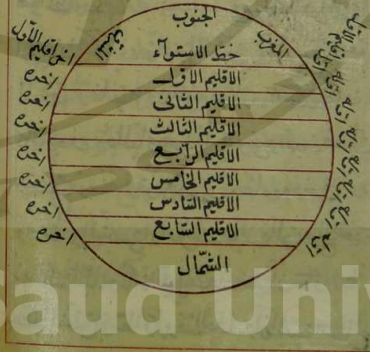 الجنوب
المغرب
المشرق
خط الاستوآء
الاقليم الاول
الاقليم الثانى
الاقليم الثالث
الاقليم الرابع
الاقليم الخامس
الاقليم السّادس
الاقليم السّابع
الشمال
اخر اقليم الاول
اخره
اخره
اخره
اخره
اخره
اخره
اخره
Saud Univ